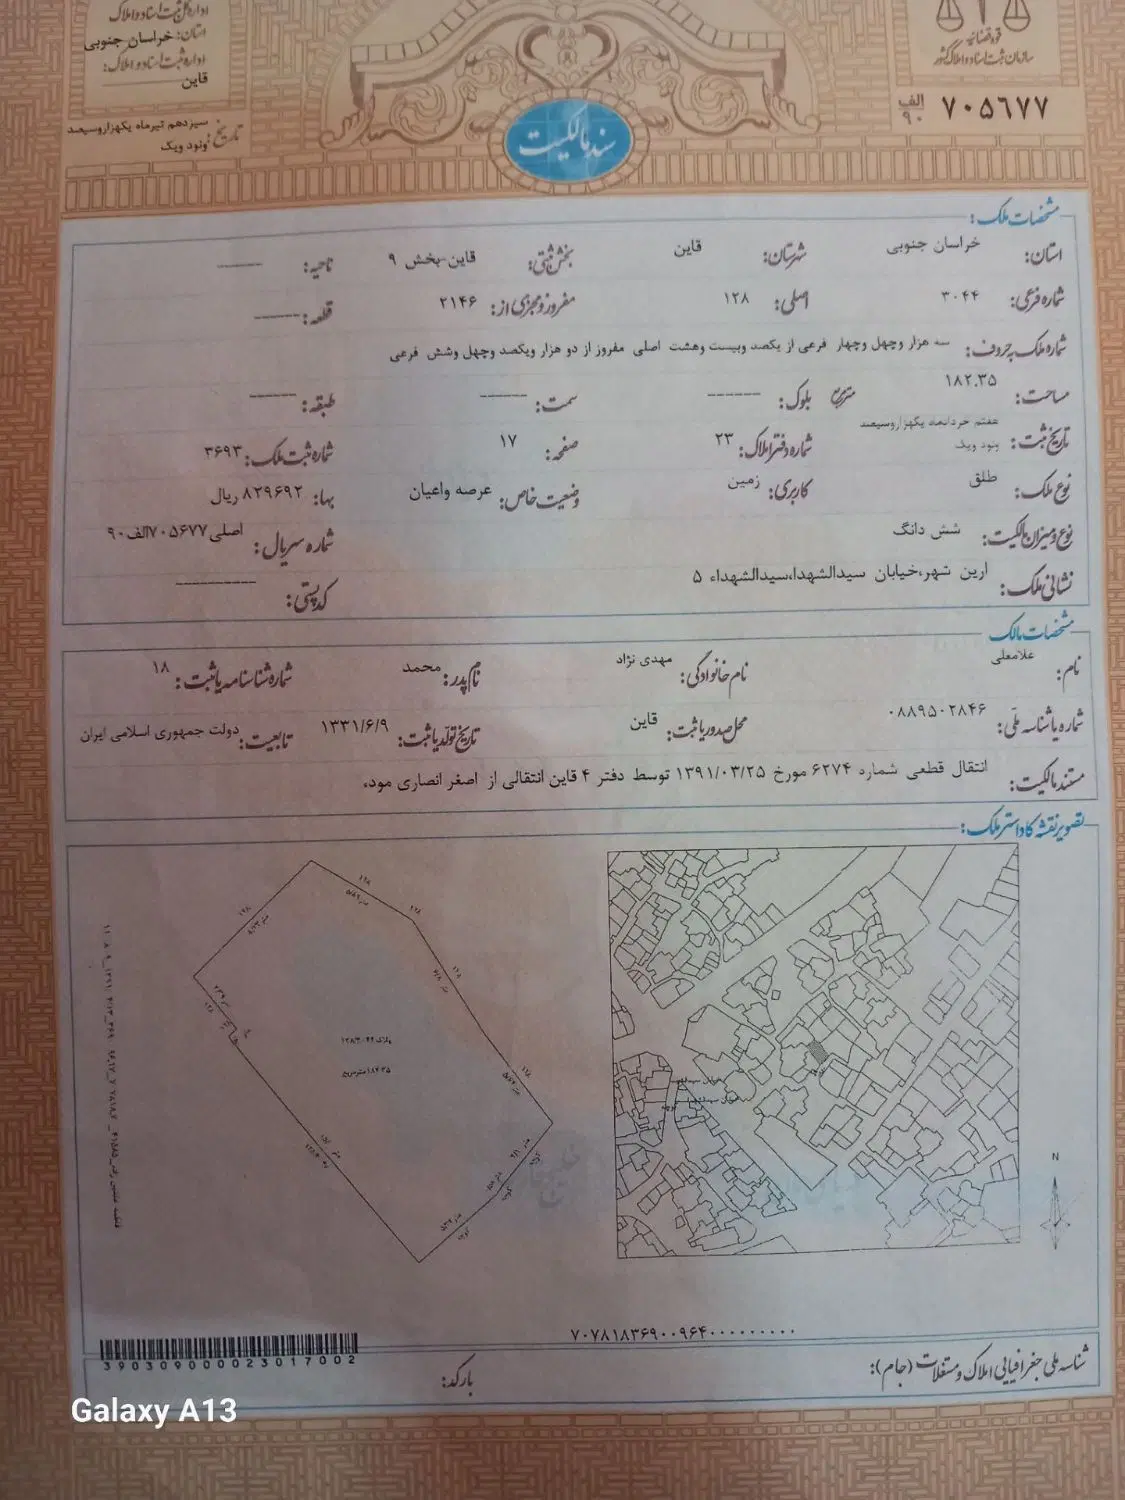 اداره کل ثبت اسناد و املاک
استان: خراسان جنوبی
اداره ثبت اسناد و املاک:
قاین
تاریخ: سیزدهم تیرماه یکهزاروسیصد
ونود ویک
قوه قضائیه
سازمان ثبت اسناد و املاک کشور
۷۰۵۶۷۷ الف ۹۰
سند مالکیت
مشخصات ملک:
استان: خراسان جنوبی شهرستان: قاین بخش ثبتی: قاین-بخش ۹ ناحیه: ------
شماره فرعی: ۳۰۴۴ اصلی: ۱۲۸ مفروز و مجزی از: ۲۱۴۶ قطعه: ------
شماره ملک به حروف: سه هزار وچهل وچهار فرعی از یکصد وبیست وهشت اصلی مفروز از دو هزار ویکصد وچهل وشش فرعی
مساحت: ۱۸۲.۳۵ مترمربع بلوک: ------ سمت: ------ طبقه: ------
تاریخ ثبت: هفتم خردادماه یکهزاروسیصد ونود ویک شماره دفتر املاک: ۲۳ صفحه: ۱۷ شماره ثبت ملک: ۳۶۹۳
نوع ملک: طلق کاربری: زمین وضعیت خاص: عرصه واعیان بها: ۸۲۹۶۹۲ ریال
نوع و میزان مالکیت: شش دانگ شماره سریال: اصلی۷۰۵۶۷۷الف۹۰
نشانی ملک: آرین شهر،خیابان سیدالشهدا،سیدالشهداء ۵ کد پستی: ----------
مشخصات مالک
نام: غلامعلی نام خانوادگی: مهدی نژاد نام پدر: محمد شماره شناسنامه یا ثبت: ۱۸
شماره یا شناسه ملی: ۰۸۸۹۵۰۲۸۴۶ محل صدور یا ثبت: قاین تاریخ تولد یا ثبت: ۱۳۳۱/۶/۹ تابعیت: دولت جمهوری اسلامی ایران
مستند مالکیت: انتقال قطعی شماره ۶۲۷۴ مورخ ۱۳۹۱/۰۳/۲۵ توسط دفتر ۴ قاین انتقالی از اصغر انصاری مود.
تصویر نقشه کاداستر ملک:
۱۲۸
۱۲۸
۱۲۸
۱۲۸
۱۲۸
N
۷۰۷۸۱۸۳۶۹۰۰۹۶۴۰۰۰۰۰۰۰۰۰۰
390309000023017002
شناسه ملی جغرافیایی املاک و مستغلات (جام): بارکد:
Galaxy A13